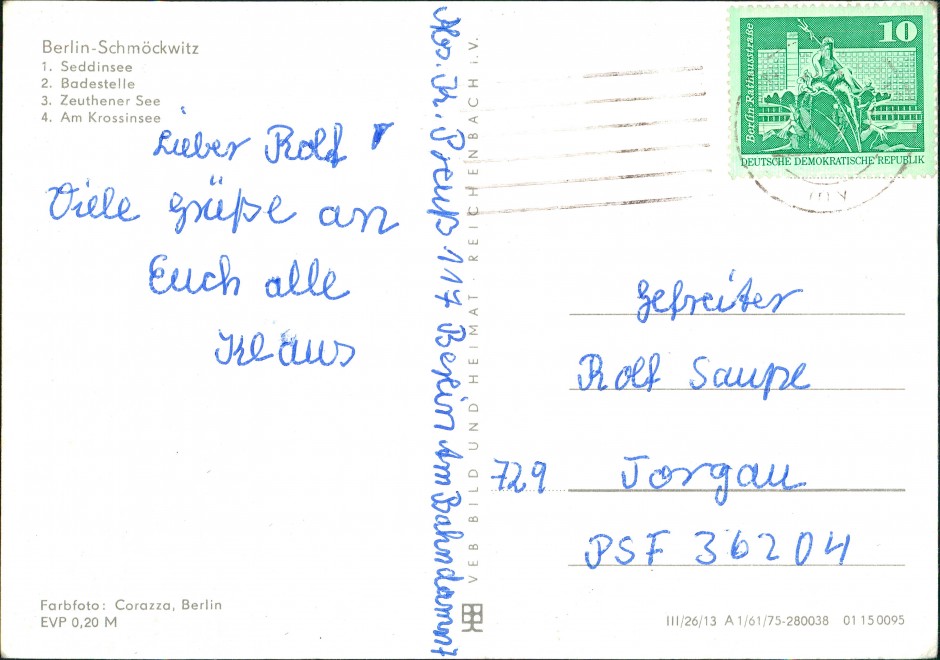 Berlin-Schmöckwitz
1. Seddinsee
2. Badestelle
3. Zeuthener See
4. Am Krossinsee
Lieber Rolf
Viele Grüße an
Euch alle
Klaus
Farbfoto: Corazza, Berlin
EVP 0,20 M
Abs. K. Preuß 117 Berlin Am Bahndamm
VEB BILD UND HEIMAT · REICHENBACH i.V.
10
Berlin-Rathausstraße
DEUTSCHE DEMOKRATISCHE REPUBLIK
Gefreiter
Rolf Saupe
729 Torgau
PSF 36204
III/26/13 A 1/61/75-280038 01 15 0095